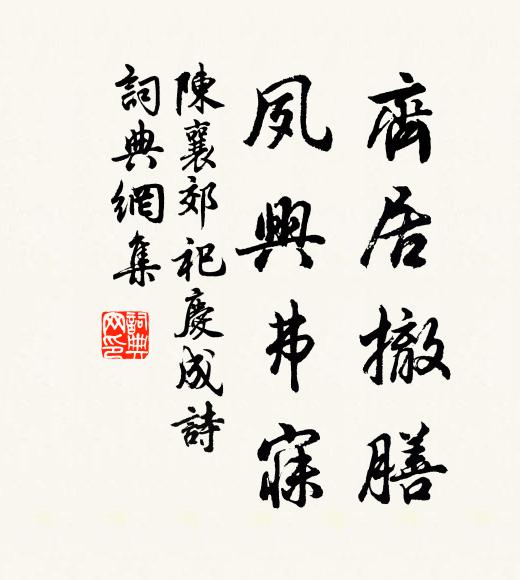 齊居撤膳
夙興弗寐
陳襄郊祀慶成詩
詞典網集
詞典网印